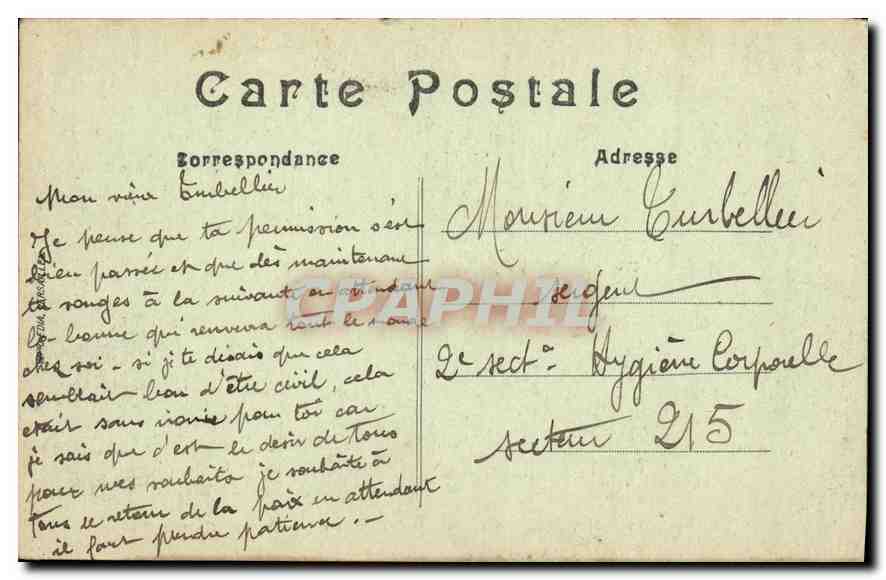 Carte Postale
Correspondance
Adresse
Mon vieux Turbellier
Je pense que ta permission s'est
bien passée et que dès maintenant
tu songes à la suivante en attendant
la bonne qui renverra tout le monde
chez soi - si je te disais que cela
semblait bon d'être civil, cela
était sans ironie pour toi car
je sais que c'est le désir de tous
pour mes souhaits je souhaite à
tous le retour de la paix en attendant
il faut prendre patience. -
Monsieur Turbellier
sergent
2e secta. Hygiène Corporelle
secteur 215
CPAPHIL